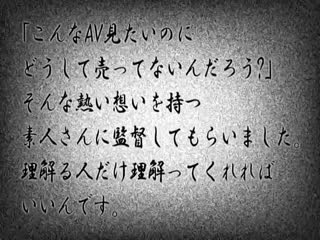 「こんなAV見たいのに
どうして売ってないんだろう?」
そんな熱い想いを持つ
素人さんに監督してもらいました。
理解る人だけ理解ってくれれば
いいんです。